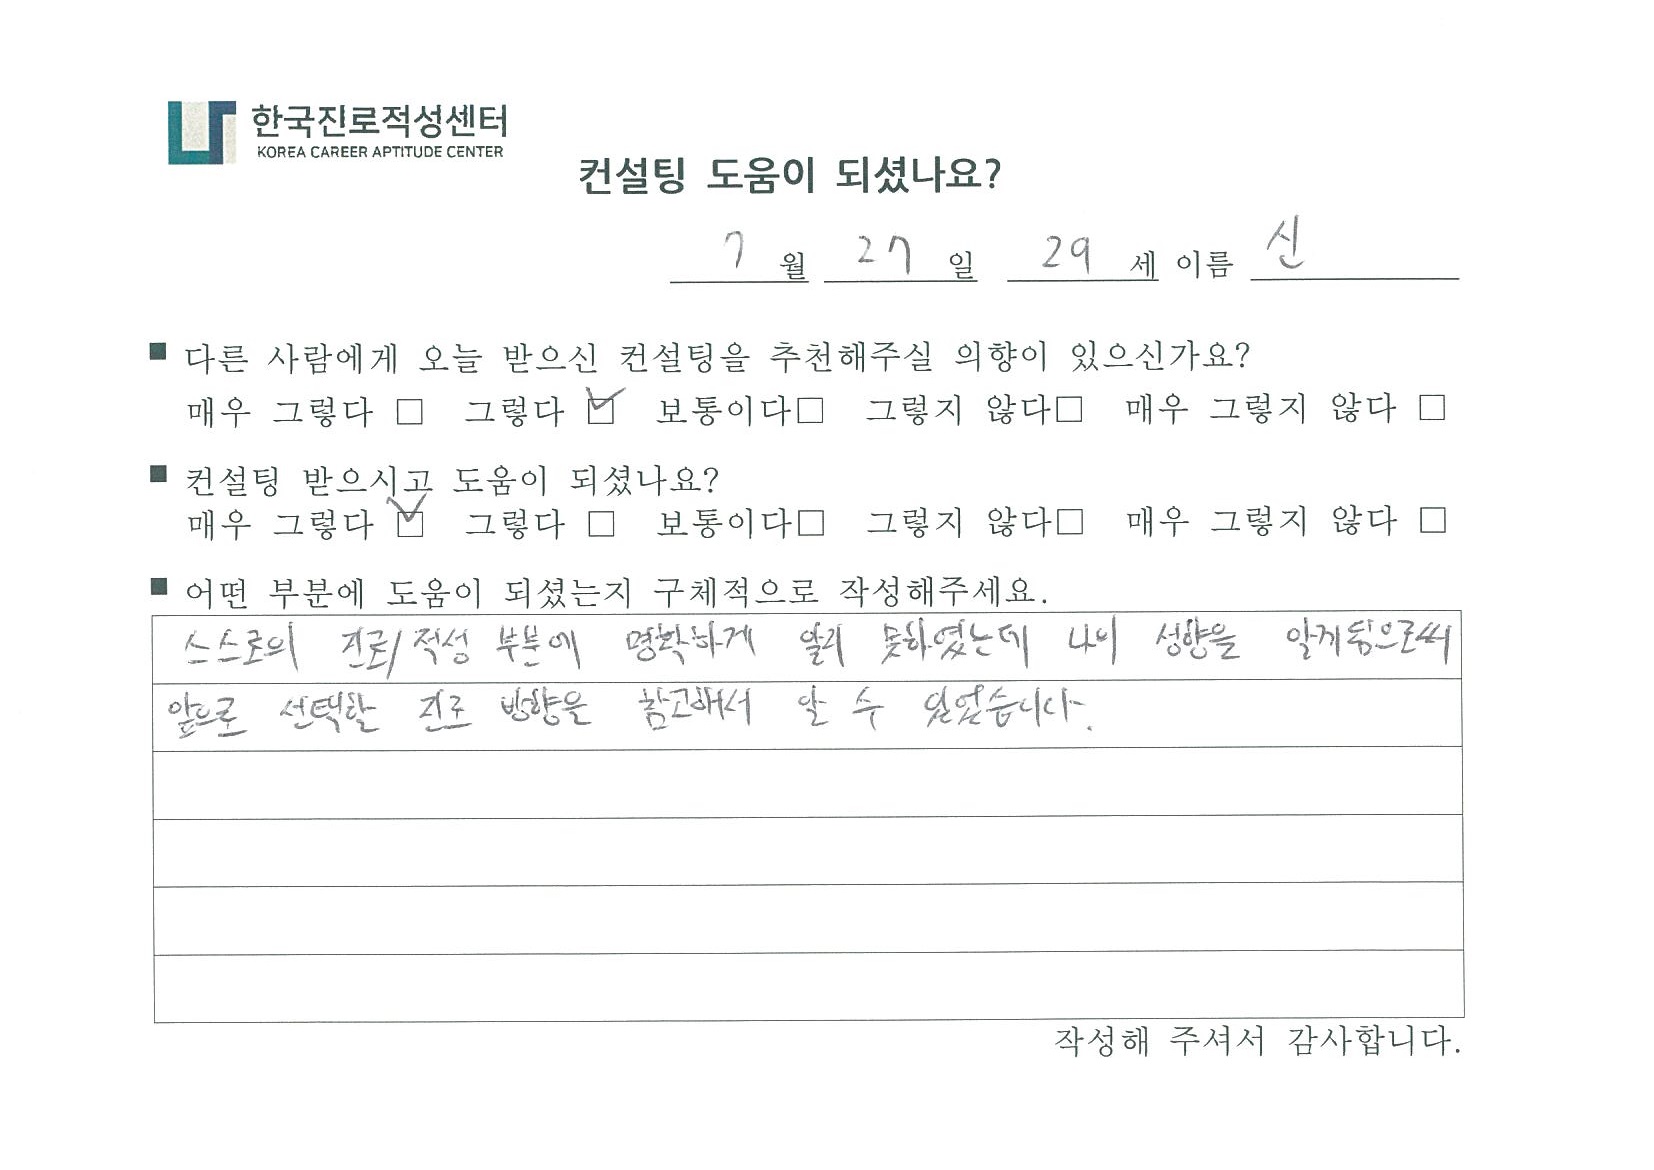 한국진로적성센터
KOREA CAREER APTITUDE CENTER
컨설팅 도움이 되셨나요?
7 월 27 일 29 세 이름 신
■ 다른 사람에게 오늘 받으신 컨설팅을 추천해주실 의향이 있으신가요?
매우 그렇다 □ 그렇다 ☑ 보통이다□ 그렇지 않다□ 매우 그렇지 않다 □
■ 컨설팅 받으시고 도움이 되셨나요?
매우 그렇다 ☑ 그렇다 □ 보통이다□ 그렇지 않다□ 매우 그렇지 않다 □
■ 어떤 부분에 도움이 되셨는지 구체적으로 작성해주세요.
스스로의 진로/적성 부분에 명확하게 알지 못하였는데 나의 성향을 알게 됨으로써
앞으로 선택할 진로 방향을 참고해서 알 수 있었습니다.
작성해 주셔서 감사합니다.